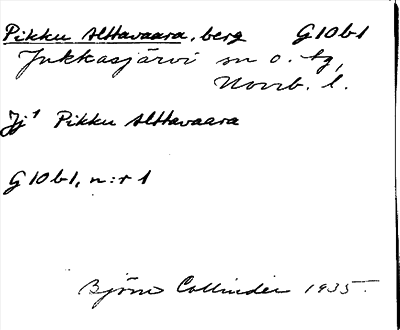 Pikku Alttavaara, berg G10b1
Jukkasjärvi sn o. tg,
Norrb. l.
Jj¹ Pikku Alttavaara
G10b1, n:r 1
Björn Collinder 1935.